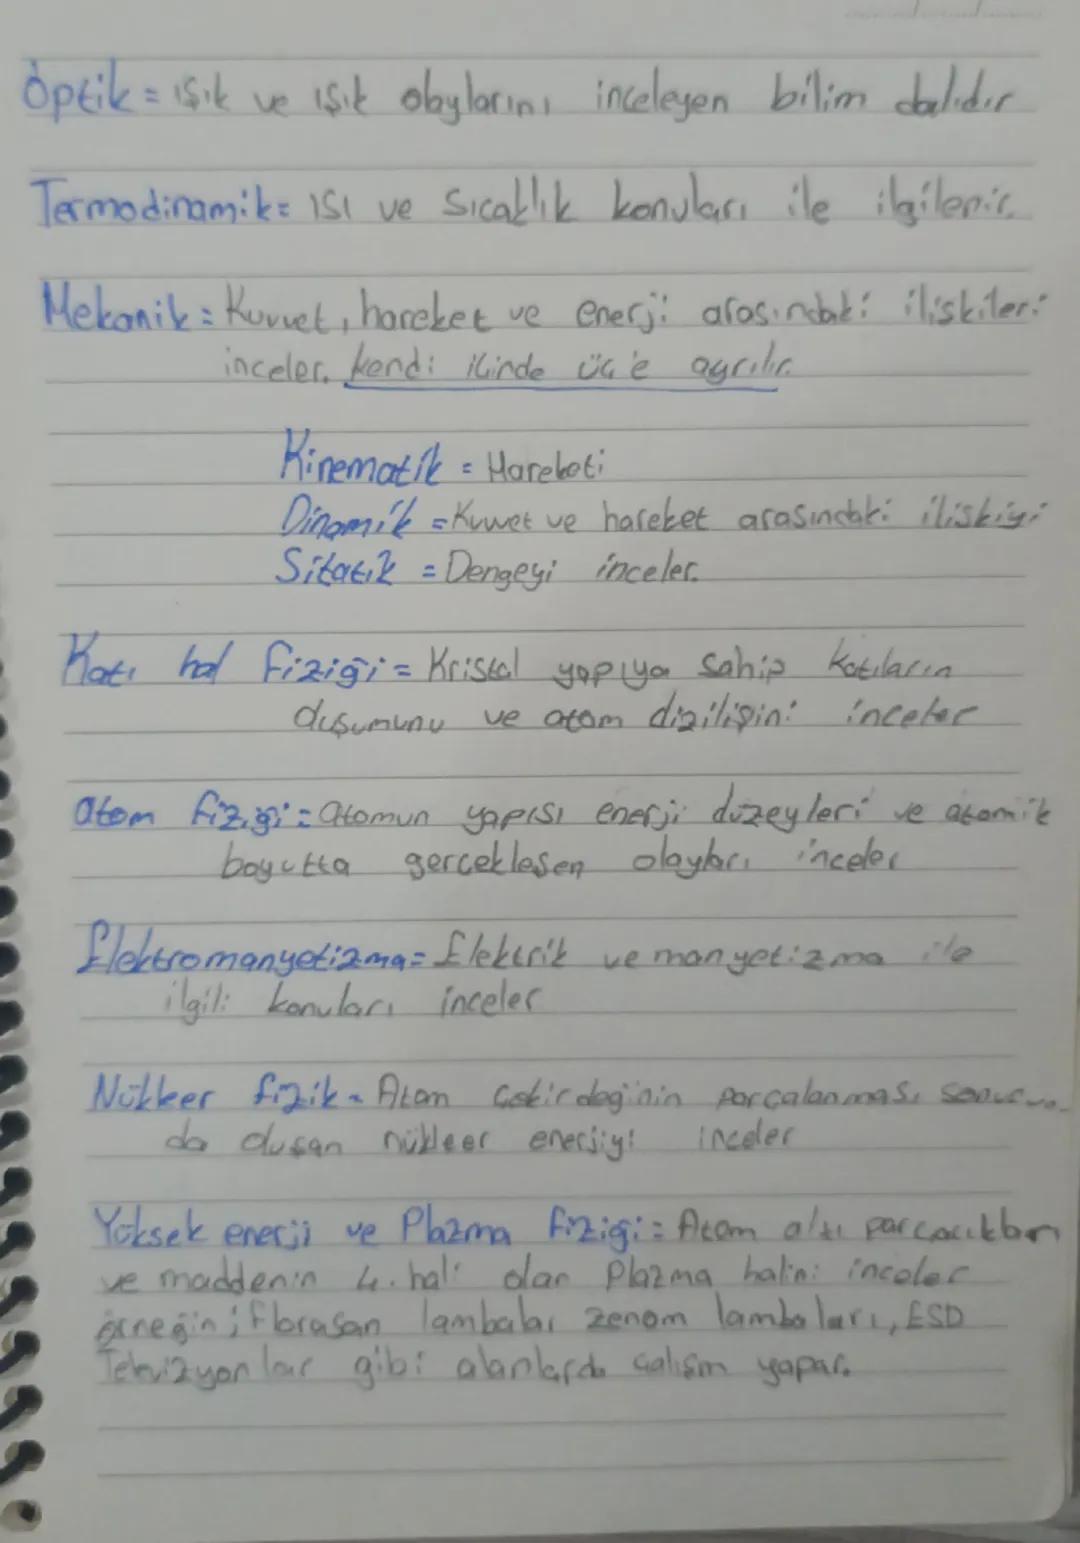 Optik = ışık ve ışık olaylarını inceleyen bilim dalıdır
Termodinamik = ısı ve Sıcaklık konuları ile ilgilenir.
Mekanik = Kuvvet, hareket ve enerji arasındaki ilişkileri
inceler. kendi içinde üç'e ayrılır.
Kinematik = Hareketi
Dinamik = Kuvvet ve hareket arasındaki ilişkiyi
Sitatik = Dengeyi inceler.
Katı hal fiziği = Kristal yapıya Sahip Katıların
duşumunu ve atom dizilişini inceler
atom fiziği = atomun yapısı enerji düzeyleri ve atomik
boyutta gerçekleşen olayları inceler
Elektromanyetizma = Elektrik ve manyetizma ile
ilgili konuları inceler
Nükleer fizik = Atom Çekirdeğinin parçalanması
da oluşan nükleer enerjiyi inceler
Yüksek enerji ve Plazma fiziği = Atom altı parçacıkları
ve maddenin 4. hali olan Plazma halini inceler
örneğin; florasan lambalar zenom lambaları, ESD
Televizyonlar gibi alanlarda çalışm yapar.